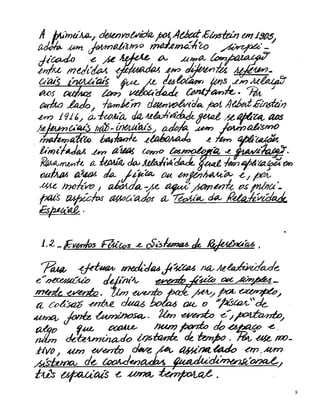 A primeira, desenvolvida por Albert Einstein em 1905,
adota um formalismo matemático simpli-
ficado e se refere a uma comparação
entre medidas efetuadas em diferentes referen-
ciais inerciais que se deslocam uns em relação
aos outros com velocidade constante. Por
outro lado, também desenvolvida por Albert Einstein
em 1916, a teoria da relatividade geral se aplica aos
referenciais não-inerciais, adota um formalismo
matemático bastante elaborado e tem aplicações
limitadas em áreas como cosmologia e gravitação.
Raramente a teoria da relatividade geral tem aplicações em
outras áreas da física ou engenharia e, por
esse motivo, aborda-se aqui somente os princi-
pais aspectos associados a Teoria da Relatividade
Especial.
1.2 - Eventos Físicos e Sistemas de Referências.
Para efetuar medidas físicas na relatividade
é necessário definir evento físico ou simples-
mente evento. Um evento pode ser, por exemplo,
a colisão entre duas bolas ou o "piscar" de
uma fonte luminosa. Um evento é, portanto,
algo que ocorre num ponto do espaço e
num determinado instante de tempo. Por esse mo-
tivo, um evento deve ser assinalado em um
sistema de coordenadas quadridimensional,
três espaciais e uma temporal.
8